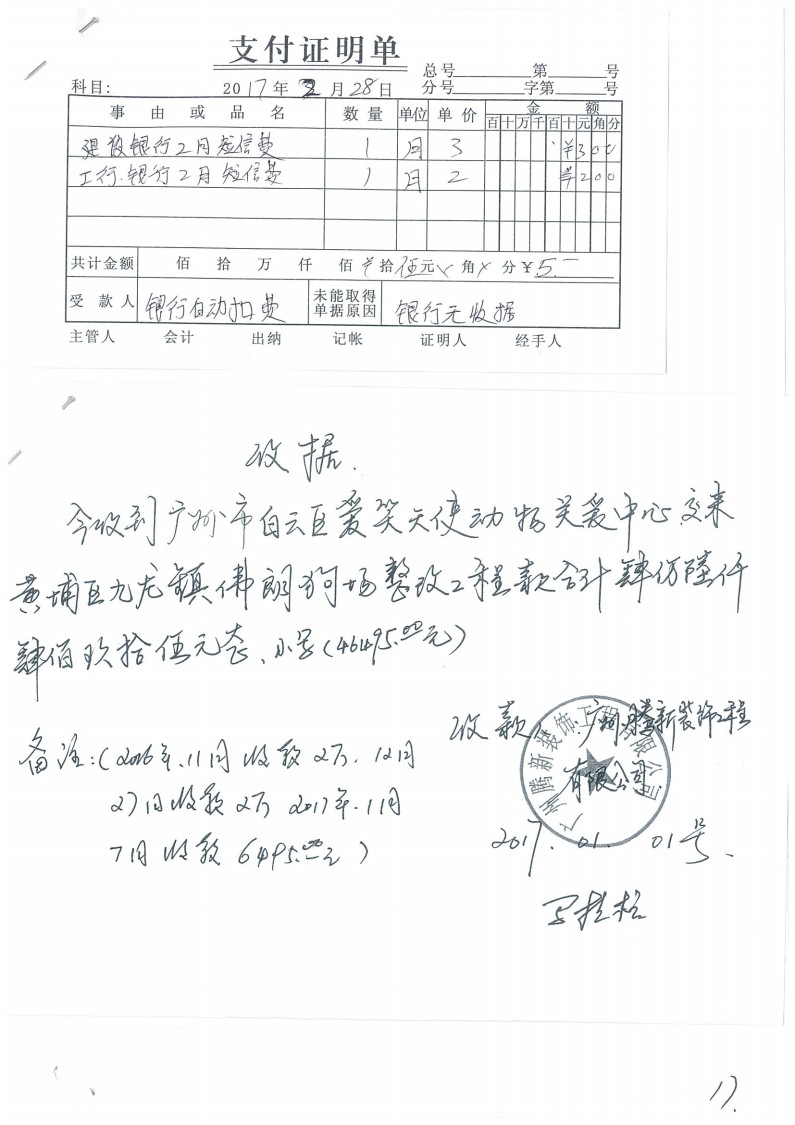 支付证明单
总号 第 号
科目: 2017年2月28日 分号 字第 号
事 由 或 品 名 数 量 单位 单 价 金 额
百十万千百十元角分
建设银行2月短信费 1 月 3 ¥300
工行.银行2月短信费 1 月 2 ¥200
共计金额 佰 拾 万 仟 佰 拾伍元 角 分¥5.-
受 款 人 银行自动扣费 未能取得单据原因 银行无收据
主管人 会计 出纳 记帐 证明人 经手人
收据.
今收到广州市白云区爱笑天使动物关爱中心交来
黄埔区九龙镇伟朗狗场整改工程款合计肆仟陆仟
肆佰玖拾伍元整、小写(46495.00元)
收款人:广州腾新装饰工程
有限公司
备注:(2016年.11月收款2万.12月
27日收款2万 2017年.1月
7日收款6495.00元)
2017.01.01号、
17.